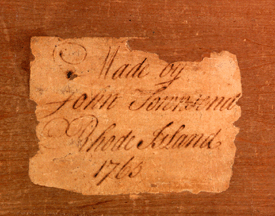 Made by
John Townsend
Rhode Island
1763